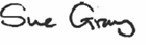 Sue Gray